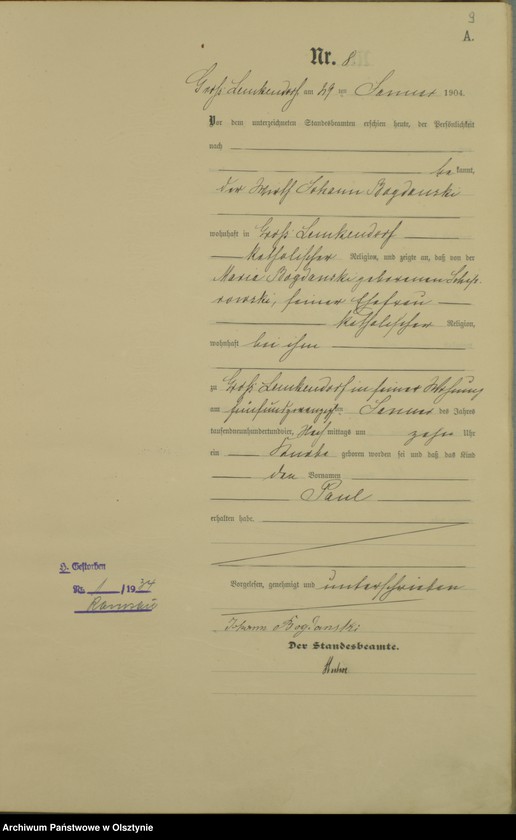 9
A.
Nr. 8
Groß Lemkendorf am 29 ten Januar 1904.
Vor dem unterzeichneten Standesbeamten erschien heute, der Persönlichkeit
nach
be kannt,
der Wirth Johann Bogdanski
wohnhaft in Groß Lemkendorf
katholischer Religion, und zeigte an, daß von der
Maria Bogdanski geborenen
rowski, seiner Ehefrau
katholischer Religion,
wohnhaft bei ihm
zu Groß Lemkendorf in seiner Wohnung
am fünfundzwanzigsten Januar des Jahres
tausendneunhundertundvier, Nach mittags um zehn Uhr
ein Knabe geboren worden sei und daß das Kind
den Vornamen
Paul
erhalten habe.
Vorgelesen, genehmigt und unterschrieben
Johann Bogdanski
Der Standesbeamte.
H. Gestorben
Nr. 1 /1934
Archiwum Państwowe w Olsztynie